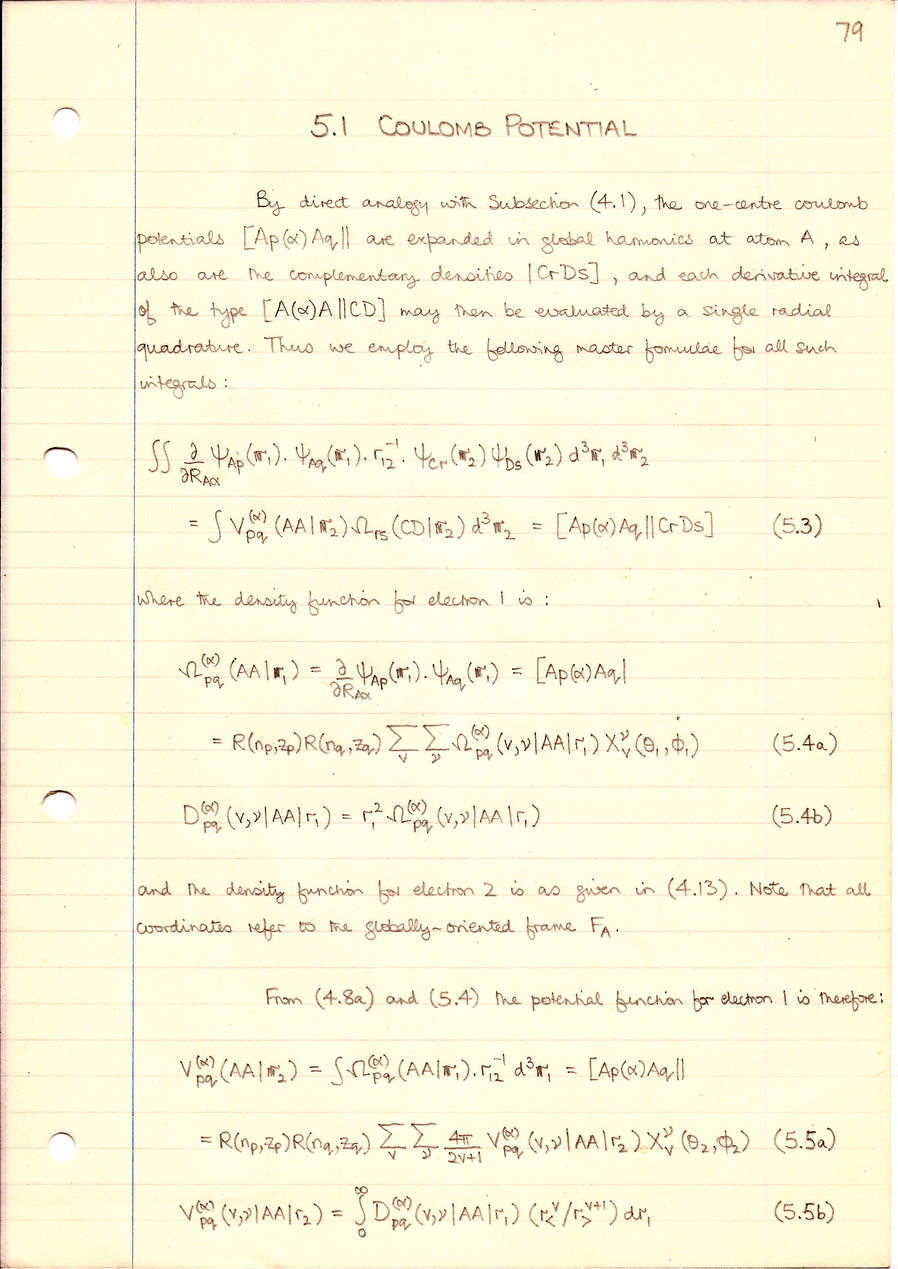 79
5.1 COULOMB POTENTIAL
By direct analogy with Subsection (4.1), the one-centre coulomb
potentials [Ap(α)Aq|| are expanded in global harmonics at atom A, as
also are the complementary densities |CrDs], and each derivative integral
of the type [A(α)A||CD] may then be evaluated by a single radial
quadrature. Thus we employ the following master formulae for all such
integrals:
∫∫ ∂/∂R_Aα ψ_Ap(r₁). ψ_Aq(r₁). r₁₂⁻¹. ψ_Cr(r₂) ψ_Ds(r₂) d³r₁ d³r₂
= ∫ V_pq^(α) (AA|r₂) Ω_rs (CD|r₂) d³r₂ = [Ap(α)Aq||CrDs] (5.3)
where the density function for electron 1 is:
Ω_pq^(α) (AA|r₁) = ∂/∂R_Aα ψ_Ap(r₁). ψ_Aq(r₁) = [Ap(α)Aq|
= R(n_p,z_p)R(n_q,z_q) Σ_v Σ_ν Ω_pq^(α) (v,ν|AA|r₁) X_v^ν (θ₁,ϕ₁) (5.4a)
D_pq^(α) (v,ν|AA|r₁) = r₁² Ω_pq^(α) (v,ν|AA|r₁) (5.4b)
and the density function for electron 2 is as given in (4.13). Note that all
coordinates refer to the globally-oriented frame F_A.
From (4.8a) and (5.4) the potential function for electron 1 is therefore:
V_pq^(α) (AA|r₂) = ∫ Ω_pq^(α) (AA|r₁). r₁₂⁻¹ d³r₁ = [Ap(α)Aq||
= R(n_p,z_p)R(n_q,z_q) Σ_v Σ_ν 4π/2v+1 V_pq^(α) (v,ν|AA|r₂) X_v^ν (θ₂,ϕ₂) (5.5a)
V_pq^(α) (v,ν|AA|r₂) = ∫₀^∞ D_pq^(α) (v,ν|AA|r₁) (r_<^v/r_>^v+1) dr₁ (5.5b)